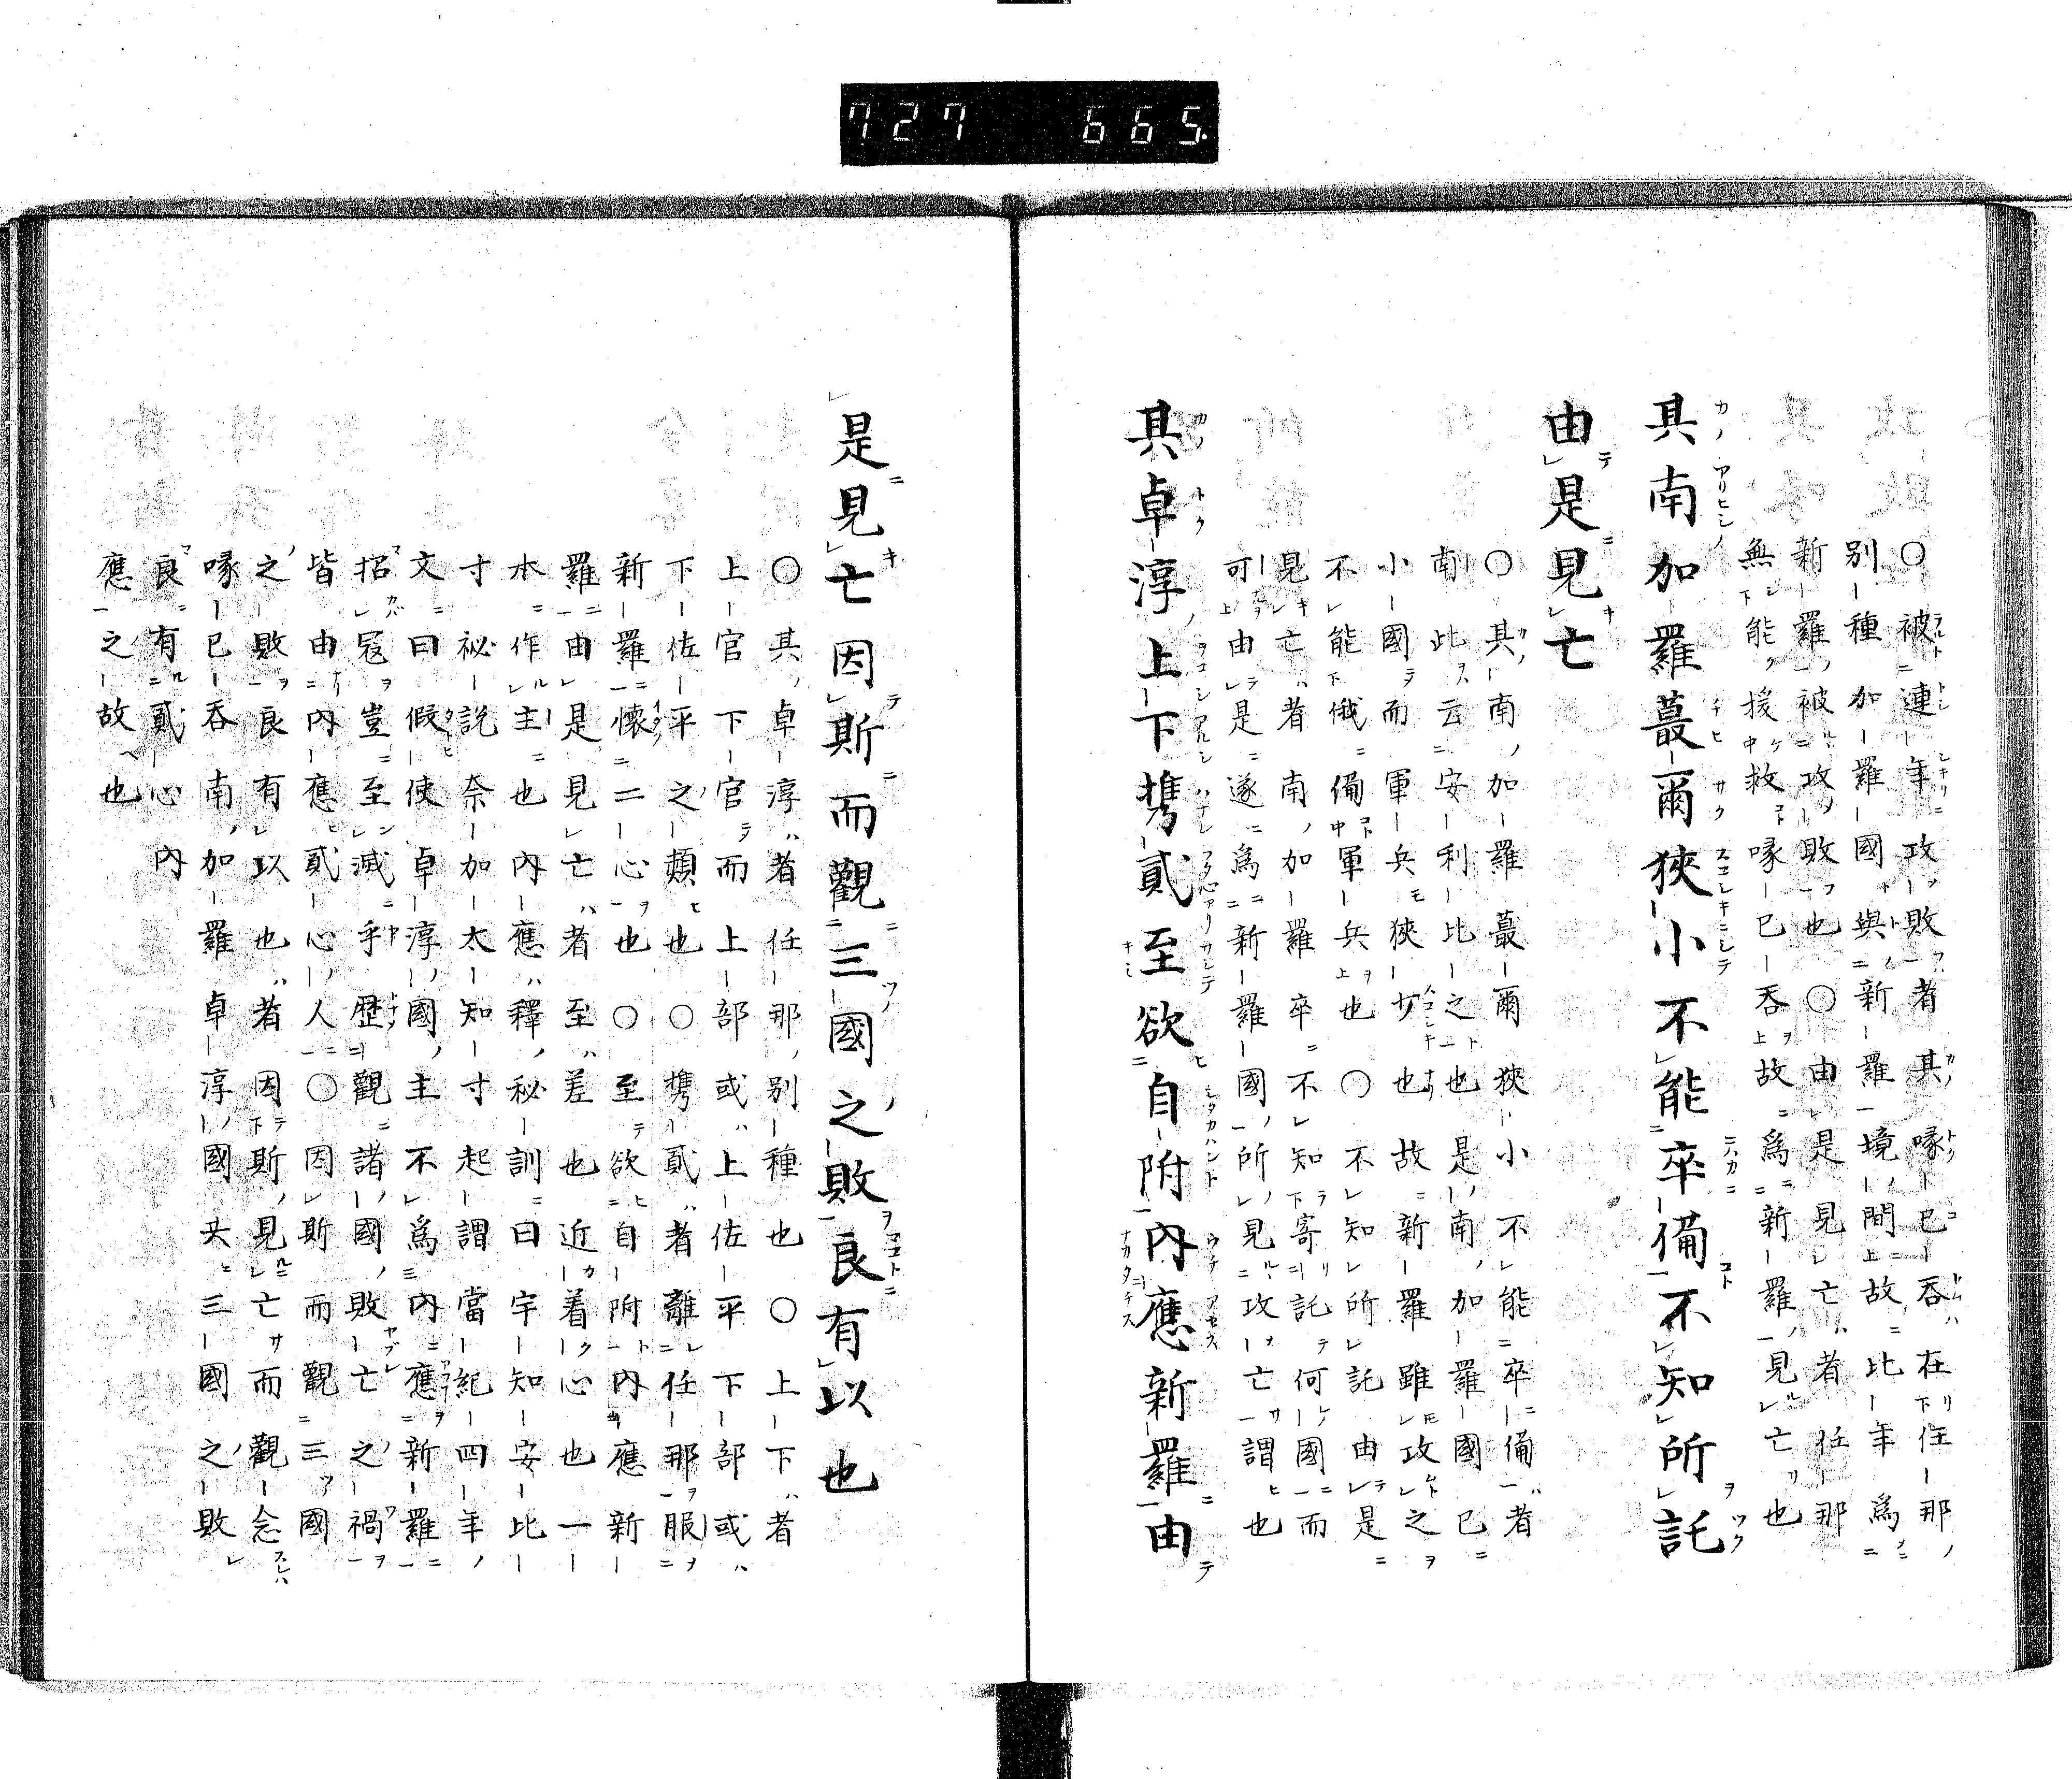 727 665.
○被連年攻敗者其㖨已呑在任那
別種加羅國與新羅境間故比年爲
新羅被攻敗也○由是見亡者任那
無能援救㖨已呑故爲新羅見亡也
其南加羅蕞爾狹小不能卒備不知所託
由是見亡
○其南加羅蕞爾狹小不能卒備者
南此云安利比之也是南加羅國已
小國而軍兵狹少也故新羅雖攻之
不能俄備軍兵也○不知所託由是
見亡者南加羅卒不知寄託何國而
可由是遂爲新羅國所見攻亡謂也
其卓淳上下携貳至欲自附內應新羅由
是見亡因斯而觀三國之敗良有以也
○其卓淳者任那別種也○上下者
上官下官而上部或上佐平下部或
下佐平之類也○携貳者離任那服
新羅懷二心也○至欲自附內應新
羅由是見亡者至差也近着心也一
本作主也內應釋秘訓曰宇知安比
寸祕說奈加太知寸起謂當紀四年
文曰假使卓淳國主不爲內應新羅
招寇豈至滅乎歷觀諸國敗亡之禍
皆由內應貳心人○因斯而觀三國
之敗良有以也者因斯見亡而觀念
㖨已呑南加羅卓淳國共三國之敗
良有貳心內
應之故也